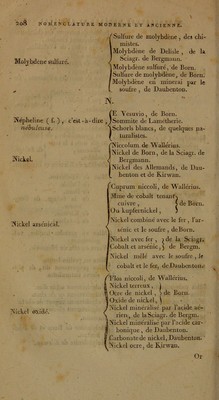 208 NOMENCLATURE MODERNE ET ANCIENNE.
Sulfure de molybdène, des chimistes.
Molybdène de Delisle, de la
Sciagr. de Bergmann.
Molybdène sulfuré.
Molybdène sulfuré, de Born.
Sulfure de molybdène, de Born.
Molybdène en minerai par le
soufre, de Daubenton.
N.
Népheline (f.), c'est-à-dire,
nébuleuse.
E Vesuvin, de Born.
Sommite de Lamétherie.
Schorls blancs, de quelques naturalistes.
Nickel.
Niccolum de Wallérius.
Nickel de Born, de la Sciagr. de
Bergmann.
Nickel des Allemands, de Daubenton et de Kirwan.
Nickel arsénical.
Cuprum niccoli, de Wallérius.
Mine de cobalt tenant
cuivre,
de Born.
Ou kupfernickel,
Nickel combiné avec le fer, l'arsénic et le soufre, de Born.
Nickel avec fer, de la Sciagr.
Cobalt et arsénic, de Bergm.
Nickel mêlé avec le soufre, le
cobalt et le fer, de Daubenton.
Nickel oxidé.
Flos niccoli, de Wallérius.
Nickel terreux,
Ocre de nickel, de Born.
Oxide de nickel,
Nickel minéralisé par l'acide aérien, de la Sciagr. de Bergm.
Nickel minéralisé par l'acide carbonique, de Daubenton.
Carbonate de nickel, Daubenton.
Nickel ocre, de Kirwan.
Or